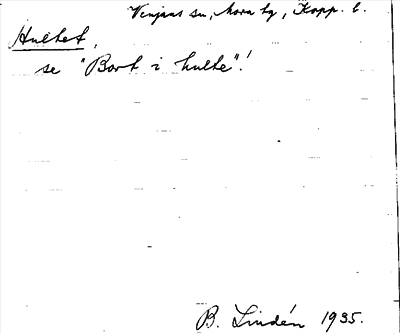 Venjans sn, Mora tg, Kopp. l.
Hultet,
se "Bort i hulte"!
B. Lindén 1935.